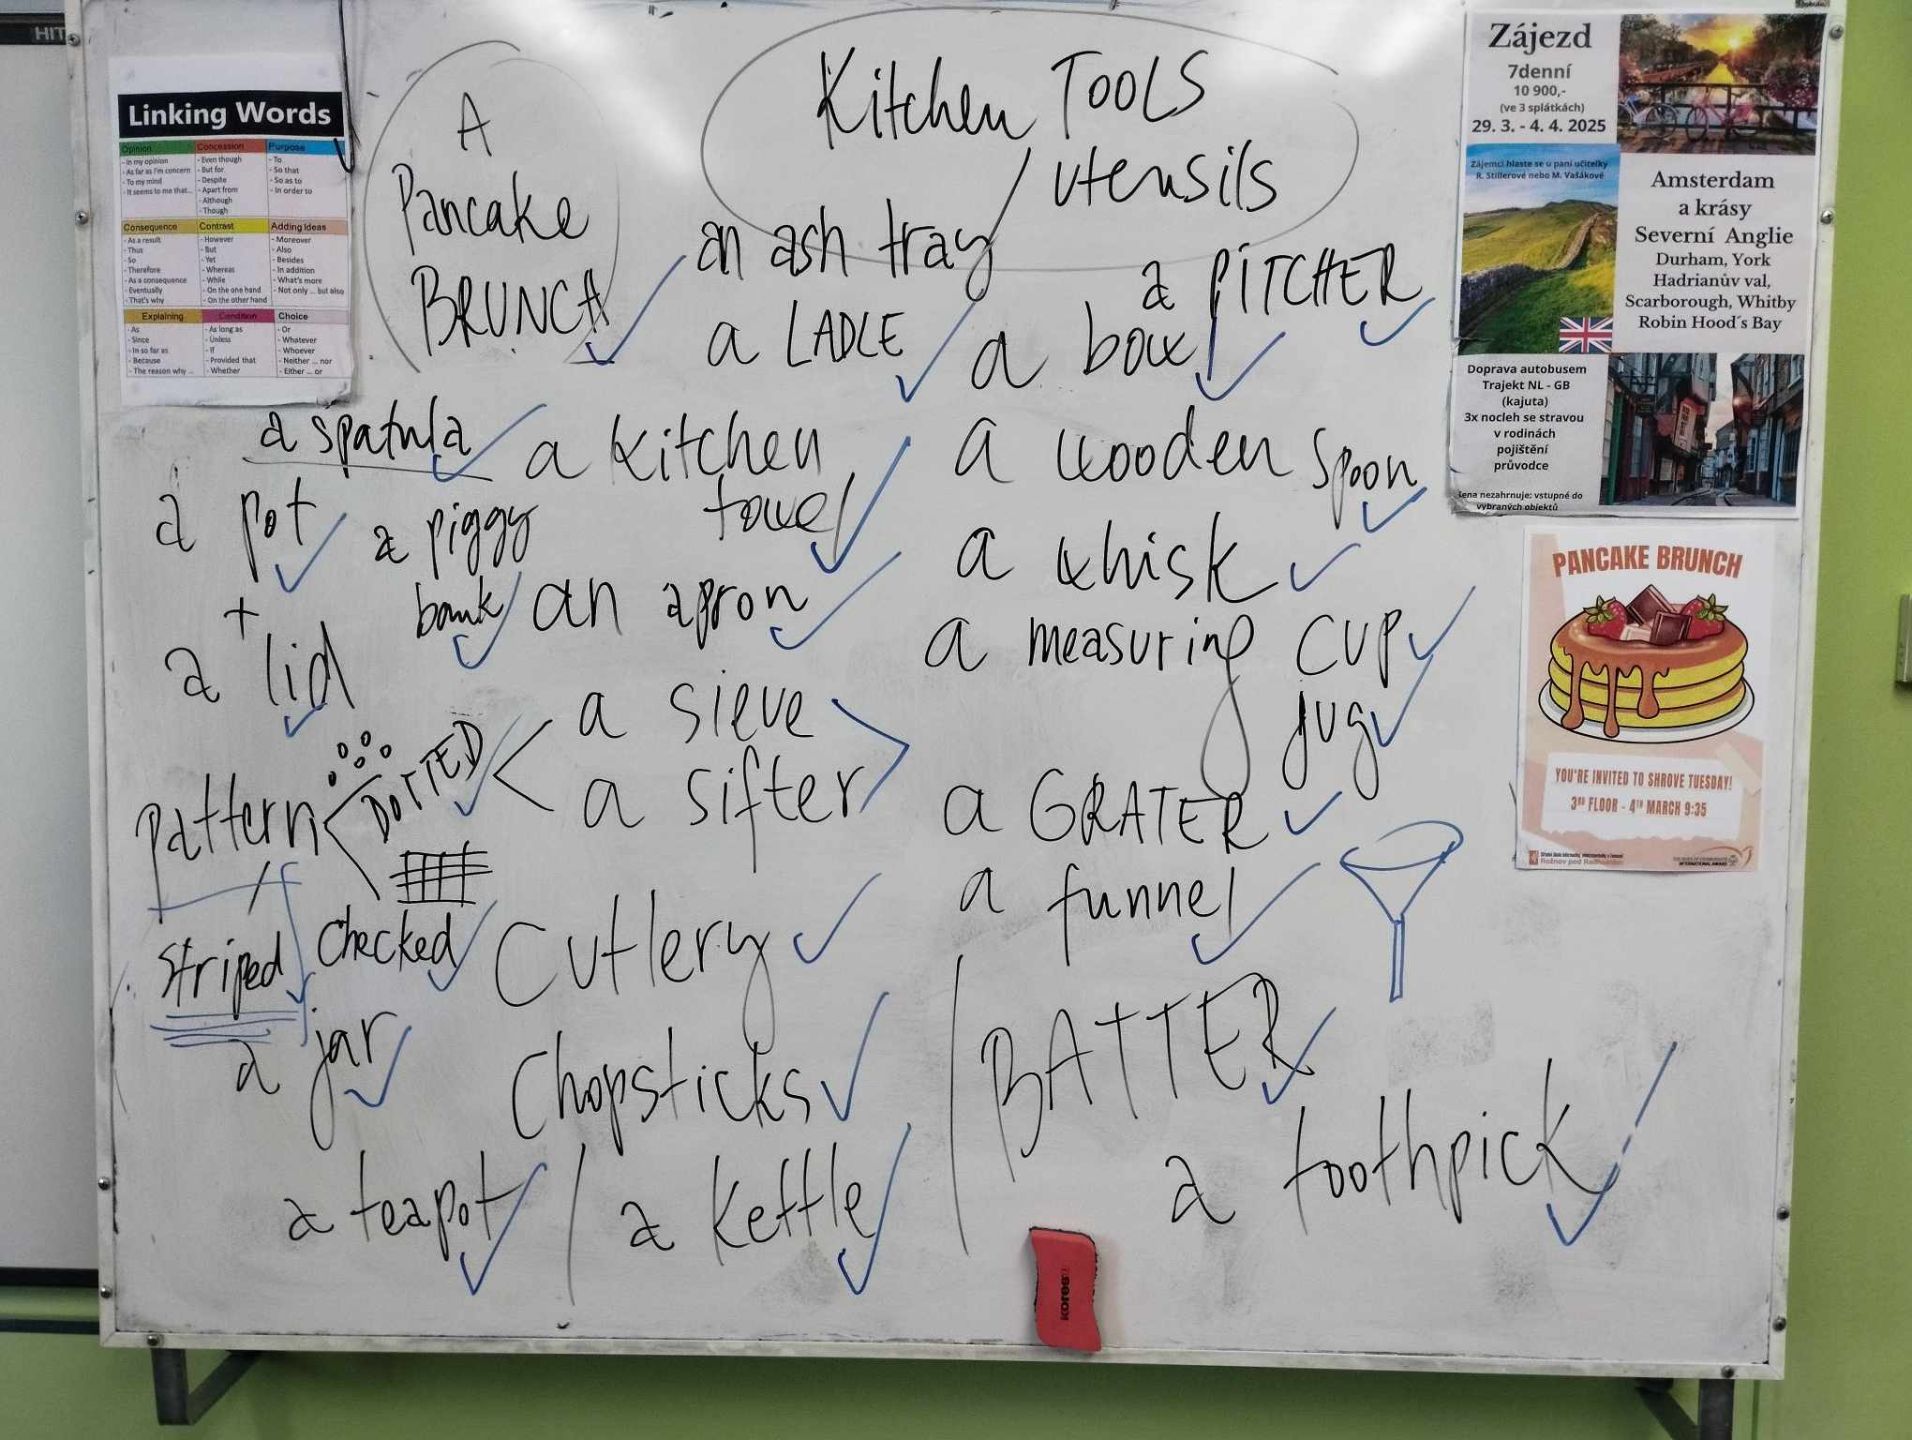 HIT
Linking Words
Opinion
- In my opinion
- As far as I'm concern
- To my mind
- It seems to me that...
Concession
- Even though
- But for
- Despite
- Apart from
- Although
- Though
Purpose
- To
- So that
- So as to
- In order to
Consequence
- As a result
- Thus
- So
- Therefore
- As a consequence
- Eventually
- That's why
Contrast
- However
- But
- Yet
- Whereas
- While
- On the one hand
- On the other hand
Adding Ideas
- Moreover
- Also
- Besides
- In addition
- What's more
- Not only ... but also
Explaining
- As
- Since
- In so far as
- Because
- The reason why ...
Condition
- As long as
- Unless
- If
- Provided that
- Whether
Choice
- Or
- Whatever
- Whoever
- Neither ... nor
- Either ... or
A
Pancake
BRUNCH
Kitchen TOOLS
/ utensils
an ash tray
a LADLE
a PITCHER
a bowl
a spatula
a kitchen
towel
a wooden spoon
a pot
+
a lid
a piggy
bank
an apron
a whisk
a measuring cup
jug
a sieve
a sifter
Pattern
DOTTED
striped
checked
a GRATER
a funnel
Cutlery
a jar
Chopsticks
BATTER
a toothpick
a teapot / a kettle
kores
Zájezd
7denní
10 900,-
(ve 3 splátkách)
29. 3. - 4. 4. 2025
Zájemci hlaste se u paní učitelky
R. Stillerové nebo M. Vašákové
Amsterdam
a krásy
Severní Anglie
Durham, York
Hadrianův val,
Scarborough, Whitby
Robin Hood´s Bay
Doprava autobusem
Trajekt NL - GB
(kajuta)
3x nocleh se stravou
v rodinách
pojištění
průvodce
cena nezahrnuje: vstupné do
vybraných objektů
PANCAKE BRUNCH
YOU'RE INVITED TO SHROVE TUESDAY!
3RD FLOOR - 4TH MARCH 9:35